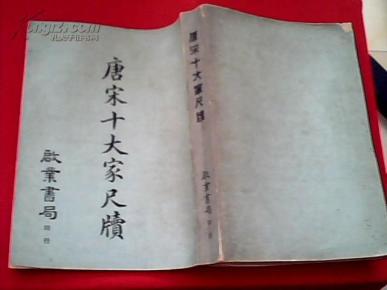 唐宋十大家尺牘
啟業書局
印行
唐宋十大家尺牘
啟業書局
印行